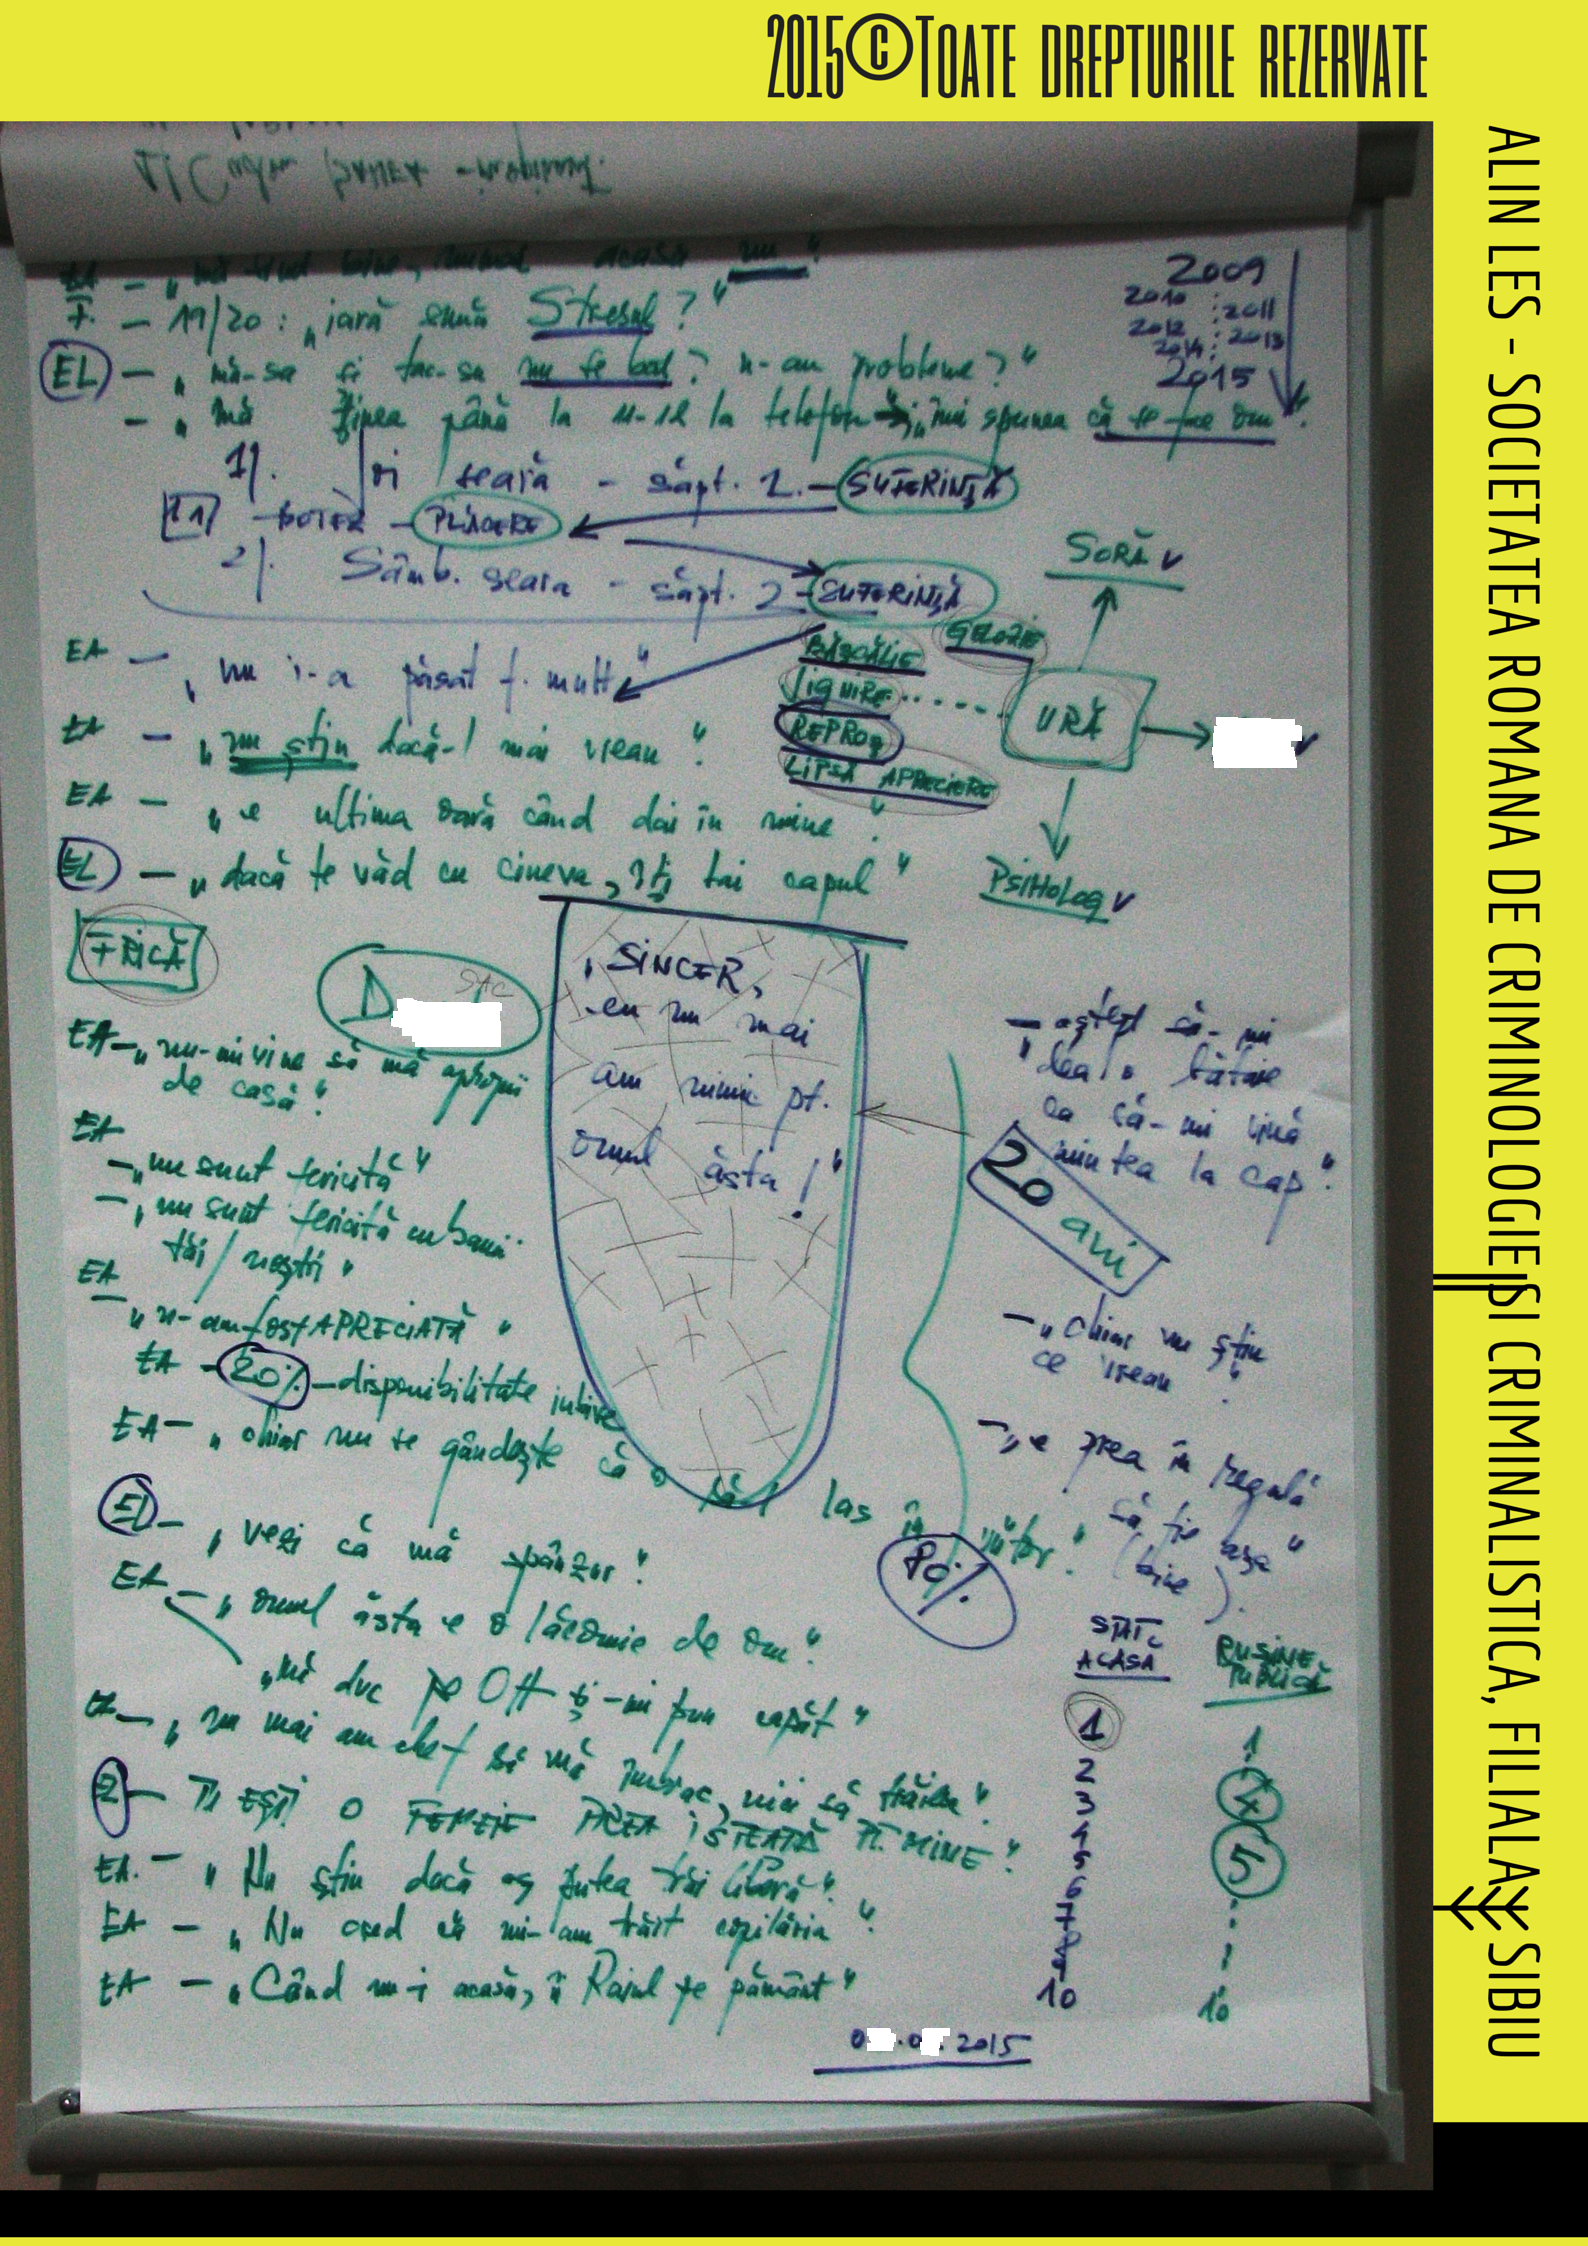 2015©TOATE DREPTURILE REZERVATE
ALIN LES - SOCIETATEA ROMANA DE CRIMINOLOGIE SI CRIMINALISTICA, FILIALA SIBIU
acasă nu"
2009
2010 : 2011
2012 : 2013
2014 :
2015
F. - 19/20: „iară sună Stresul?"
EL - „mă-sa și tac-su nu se bat? n-au probleme?"
- „mă ținea până la 11-12 la telefon → „îmi spunea că se face om".
1). Joi seară - săpt. 1. - SUFERINȚĂ
1.1 BOTEZ - PLĂCERE
2). Sâmb. seara - săpt. 2 - SUFERINȚĂ
SORĂ v
GELOZIE
BĂȘCĂLIE
JIGNIRE
REPROȘ
LIPSĂ APRECIERE
URĂ
PSIHOLOG v
EA - „nu i-a păsat f. mult"
EA - „nu știu dacă-l mai vreau".
EA - „e ultima oară când dai în mine".
EL - „dacă te văd cu cineva, îți tai capul"
FRICĂ
D
SAC
„SINCER,
eu nu mai
am nimic pt.
omul ăsta!"
EA - „nu-mi vine să mă apropii
de casă".
EA
- „nu sunt fericită"
- „nu sunt fericită cu banii
tăi / noștri"
EA
- „n-am fost APRECIATĂ"
EA - 20% - disponibilitate iubire
EA - „chiar nu se gândește că o să-l las în viitor".
80%
- „aștept să-mi
dea o bătaie
ca să-mi vină
mintea la cap".
20 ani
- „chiar nu știu
ce vreau".
- „e prea în regulă
să fie așa"
(bine).
EL - „vezi că mă spânzur".
EA - „omul ăsta e o lăcomie de om".
„Mă duc pe Olt și-mi pun capăt"
- „nu mai am chef să mă îmbrac, nici să trăiesc".
- TU EȘTI O FEMEIE PREA ISTEAȚĂ PT. MINE".
EA. - „Nu știu dacă aș putea trăi liberă".
EA - „Nu cred că mi-am trăit copilăria".
EA - „Când nu-i acasă, îi Raiul pe pământ"
STAT
ACASĂ
1
2
3
4
5
6
7
8
9
10
RUȘINE
PUBLICĂ
1
4
5
10
2015